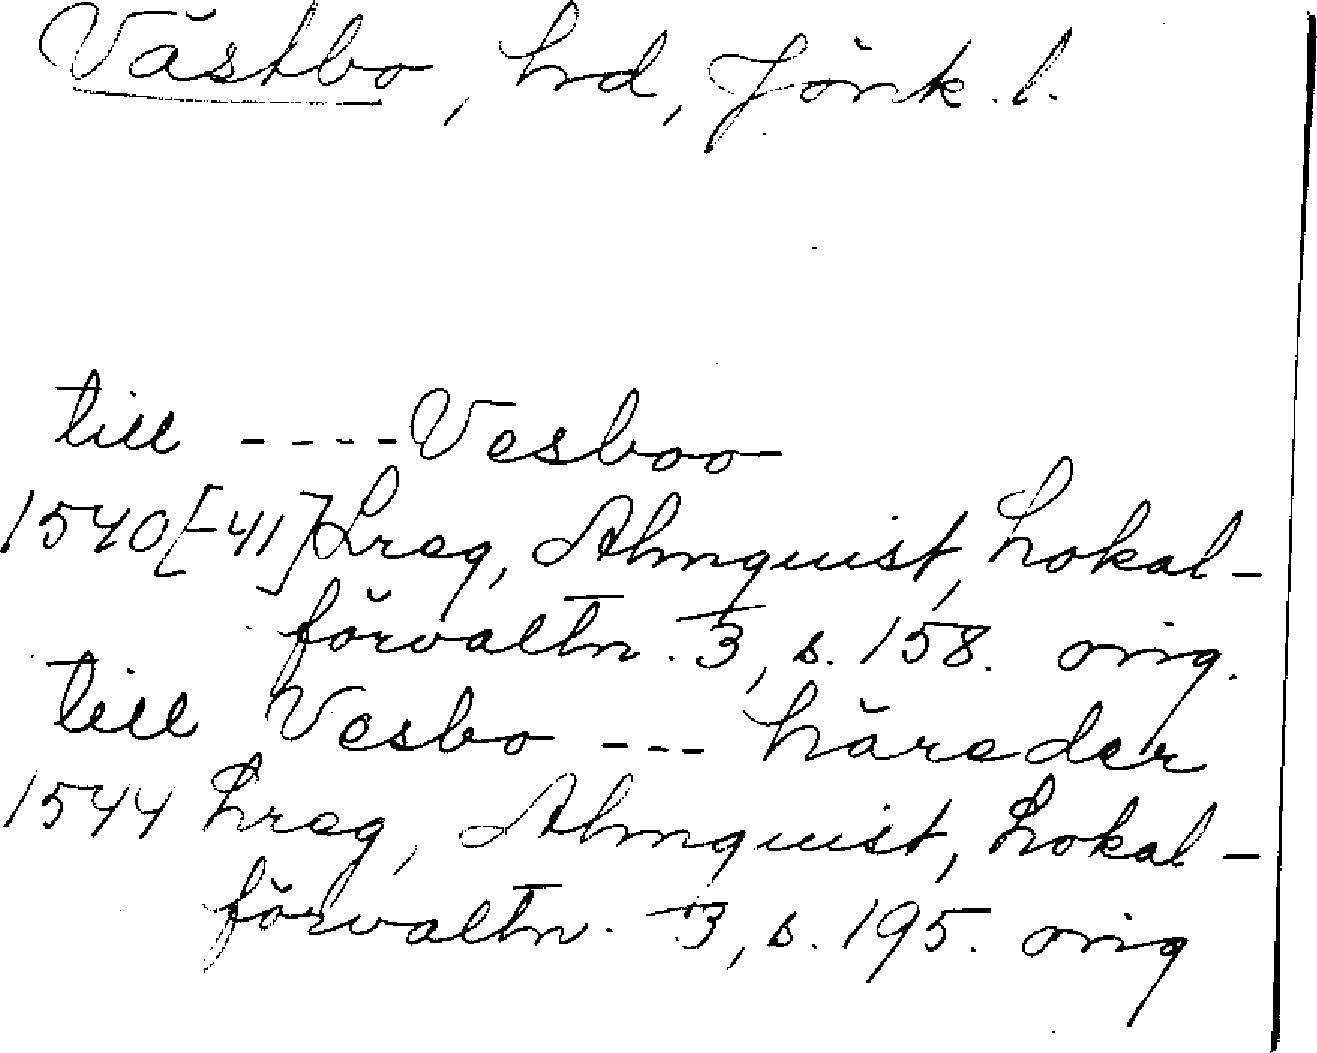 Västbo, hd, Jönk. l.
till ---- Vesboo
1540[-41] Lreg, Almquist, Lokal-
förvaltn. 3, s. 158. orig.
till Vesbo --- häreder
1544 Lreg, Almquist, Lokal-
förvaltn. 3, s. 195. orig